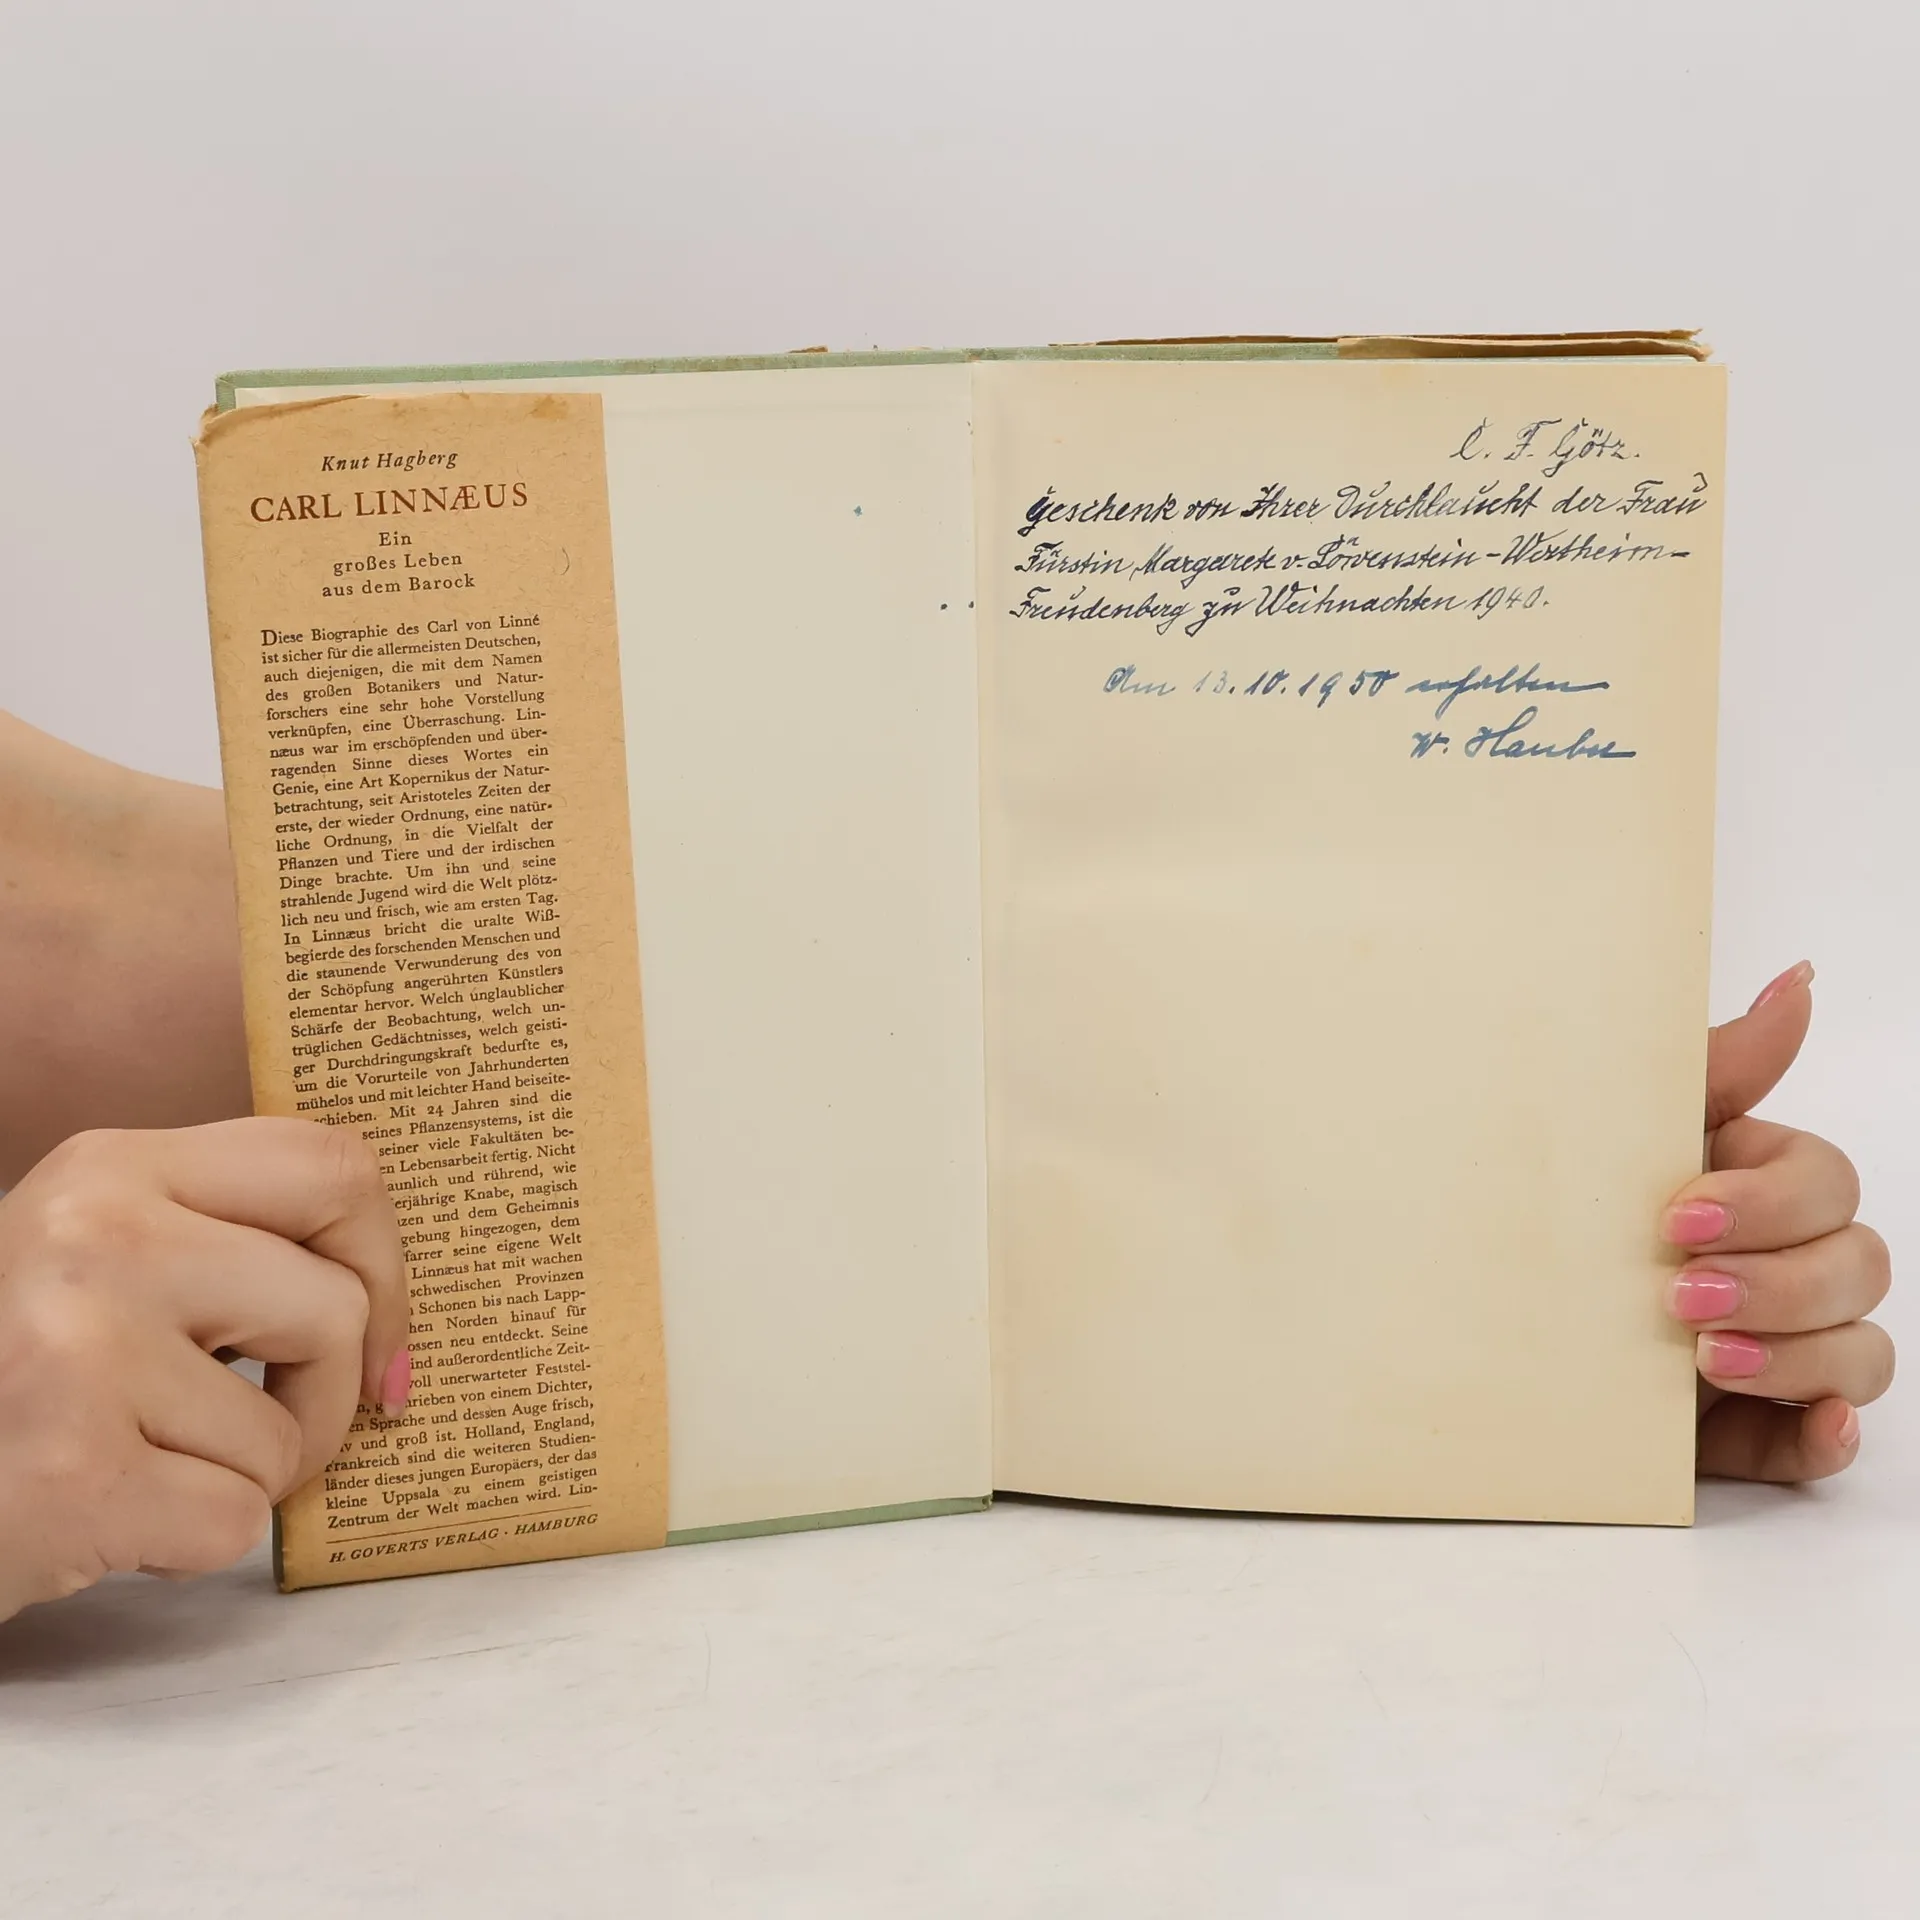 Knut Hagberg
CARL LINNÆUS
Ein
großes Leben
aus dem Barock
Diese Biographie des Carl von Linné
ist sicher für die allermeisten Deutschen,
auch diejenigen, die mit dem Namen
des großen Botanikers und Natur-
forschers eine sehr hohe Vorstellung
verknüpfen, eine Überraschung. Lin-
næus war im erschöpfenden und über-
ragenden Sinne dieses Wortes ein
Genie, eine Art Kopernikus der Natur-
betrachtung, seit Aristoteles Zeiten der
erste, der wieder Ordnung, eine natür-
liche Ordnung, in die Vielfalt der
Pflanzen und Tiere und der irdischen
Dinge brachte. Um ihn und seine
strahlende Jugend wird die Welt plötz-
lich neu und frisch, wie am ersten Tag.
In Linnæus bricht die uralte Wiß-
begierde des forschenden Menschen und
die staunende Verwunderung des von
der Schöpfung angerührten Künstlers
elementar hervor. Welch unglaublicher
Schärfe der Beobachtung, welch un-
trüglichen Gedächtnisses, welch geisti-
ger Durchdringungskraft bedurfte es,
um die Vorurteile von Jahrhunderten
mühelos und mit leichter Hand beiseite-
chieben. Mit 24 Jahren sind die
seines Pflanzensystems, ist die
seiner viele Fakultäten be-
en Lebensarbeit fertig. Nicht
aunlich und rührend, wie
erjährige Knabe, magisch
nzen und dem Geheimnis
gebung hingezogen, dem
farrer seine eigene Welt
Linnæus hat mit wachen
schwedischen Provinzen
Schonen bis nach Lapp-
hen Norden hinauf für
ossen neu entdeckt. Seine
ind außerordentliche Zeit-
voll unerwarteter Feststel-
n, g rieben von einem Dichter,
en Sprache und dessen Auge frisch,
iv und groß ist. Holland, England,
Frankreich sind die weiteren Studien-
länder dieses jungen Europäers, der das
kleine Uppsala zu einem geistigen
Zentrum der Welt machen wird. Lin-
H. GOVERTS VERLAG · HAMBURG
C. F. Götz.
Geschenk von Ihrer Durchlaucht der Frau
Fürstin Margarete v. Löwenstein-Wertheim-
Freudenberg zu Weihnachten 1940.
Am 13.10.1950 erhalten
W. Hauber